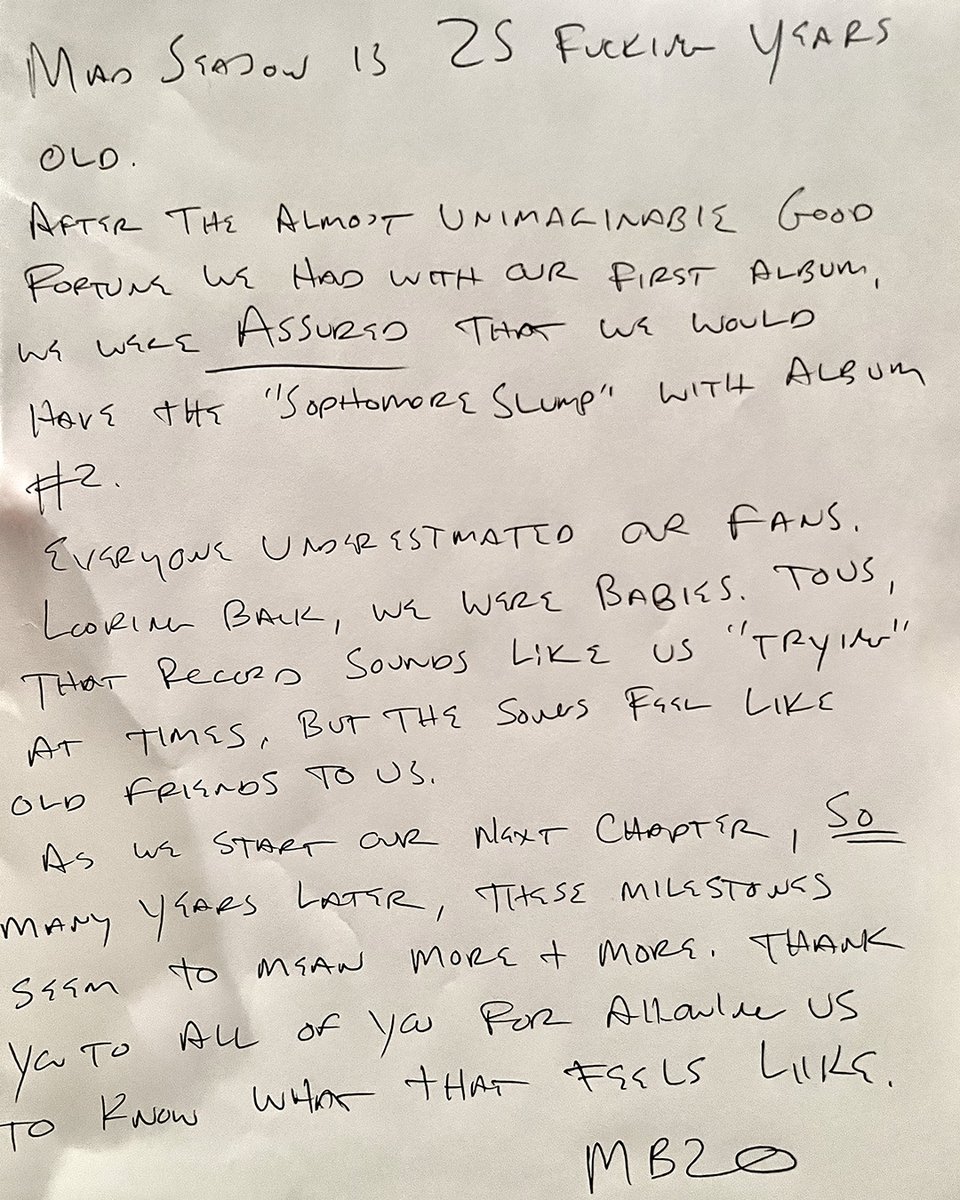 MAD SEASON IS 25 FUCKING YEARS
OLD.
AFTER THE ALMOST UNIMAGINABLE GOOD
FORTUNE WE HAD WITH OUR FIRST ALBUM,
WE WERE ASSURED THAT WE WOULD
HAVE THE "SOPHOMORE SLUMP" WITH ALBUM
#2.
EVERYONE UNDERESTIMATED OUR FANS.
LOOKING BACK, WE WERE BABIES. TO US,
THAT RECORD SOUNDS LIKE US "TRYING"
AT TIMES, BUT THE SONGS FEEL LIKE
OLD FRIENDS TO US.
AS WE START OUR NEXT CHAPTER, SO
MANY YEARS LATER, THESE MILESTONES
SEEM TO MEAN MORE + MORE. THANK
YOU TO ALL OF YOU FOR ALLOWING US
TO KNOW WHAT THAT FEELS LIKE.
MB20